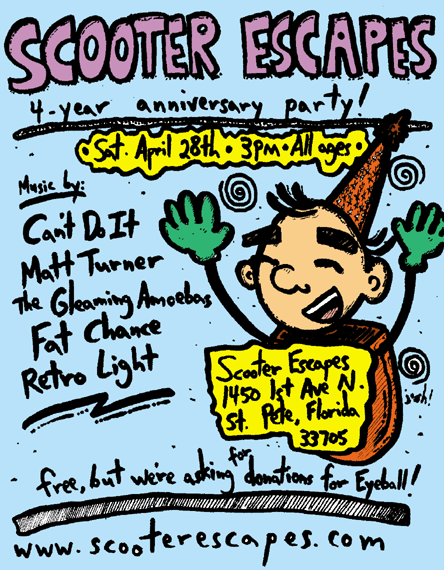 SCOOTER ESCAPES
4-year anniversary party!
• Sat. April 28th • 3pm • All ages •
Music by:
Can't Do It
Matt Turner
The Gleaming Amoebas
Fat Chance
Retro Light
Scooter Escapes
1450 1st Ave N.
St. Pete, Florida
33705
free, but we're asking for donations for Eyeball!
www.scooterescapes.com